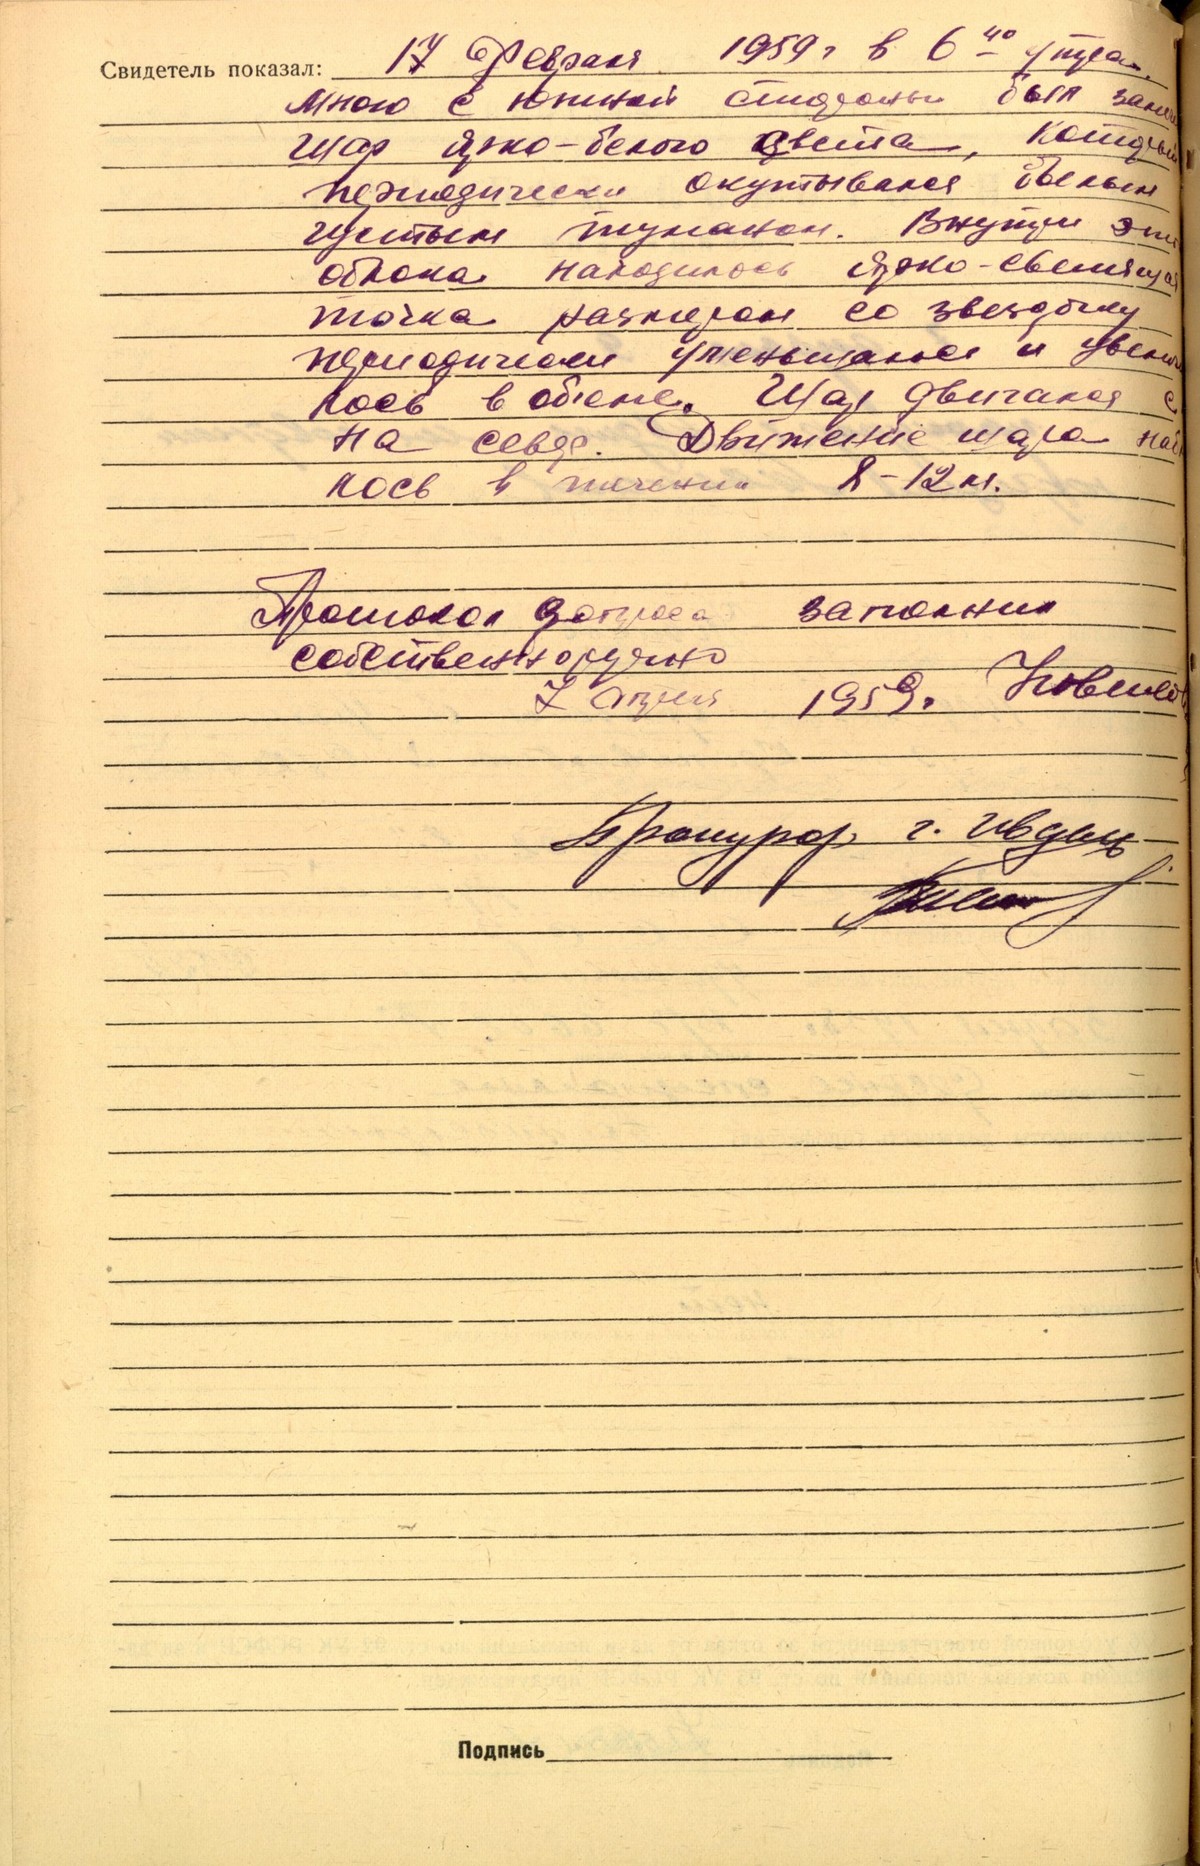 Свидетель показал: 17 февраля 1959 г в 6 40 утра.
мною с южной стороны был заме
шар ярко-белого цвета, который
периодически окутывался белым
густым туманом. Внутри это
облака находилось ярко-светящая
точка размером со звездочку
периодически уменьшаясь и увели
лось в объеме. Шар двигался с
на север. Движение шара наб
лось в течении 8-12 м.
Протокол допроса заполнил
собственноручно
7 апреля 1959г.
Прокурор г. Ивдель
Подпись